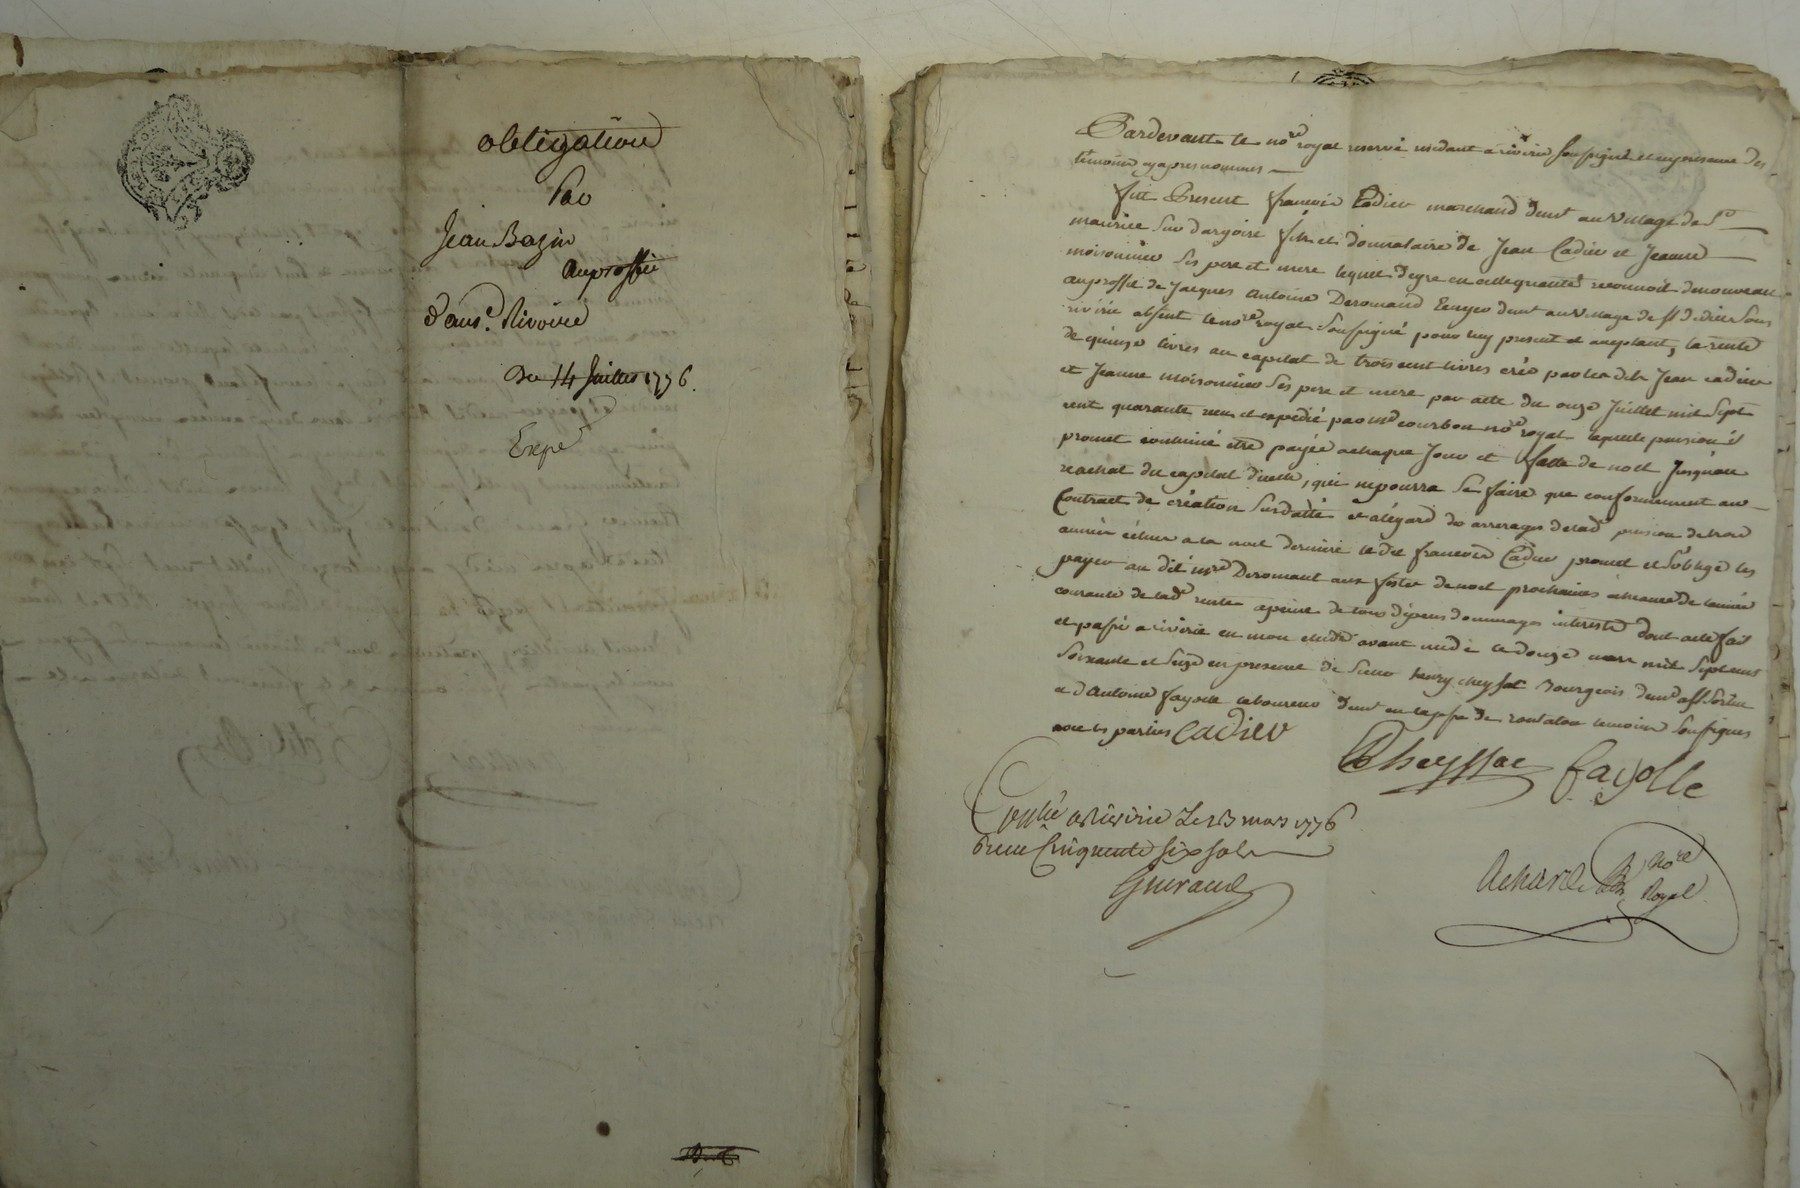 obligation
Par
Jean Bazin
auproffit
d'ant.e Rivoire
Du 14 Juillet 1776.
Expé
Pardevant le no.re royal reservé residant a riverie soussigné et enpresence des
témoins cyapres nommés
fut Present francois Cadier marchand dem.t au village de S.t
maurice sur dargoire fils et donnataire de Jean Cadier et Jeanne
moisonnier ses pere et mere lequel degre en cette qualité reconnoit denouveau
auproffit de Jacques antoine Deromand dem.t au village de st didier sous
riverie absent le no.re royal soussigné pour luy present et aceptant, la rente
de quinze livres au capital de trois cent livres créé par les dits Jean cadier
et Jeanne moisonnier ses pere et mere par acte du onze Juillet mil sept
cent quarante reçu et expedié par m.e courbon no.re royal laquelle pension il
promet continué être payée achaque Jour et fette de noel Jusqu'au
rachat du capital d'icelle, qui nepourra se faire que conformement au
Contract de création susdatté et alégard de arrerages de lad.e pension de trois
année échue a la noel derniere ledit francois Cadier promet et s'oblige les
payer au dit m.re Deromant aux fetes de noel prochaines avec de l'année
courante de lad.e rente apeine de tous dépens dommages interests dont acte fait
et passé a riverie en mon etude avant midi le douze mars mil sept cens
soixante et seize en presence de sieur henry cheyssac Bourgeois dem.t a st Sorlin
et d'Antoine fayolle laboureur dem.t en la psse de rontalon temoins soussignés
avec les parties Cadier
Cheyssac fayolle
Con.lé a Riverie Le 13 mars 1776
Reçu Cinquante six sols
Guiraud
Achard No.re
Royal